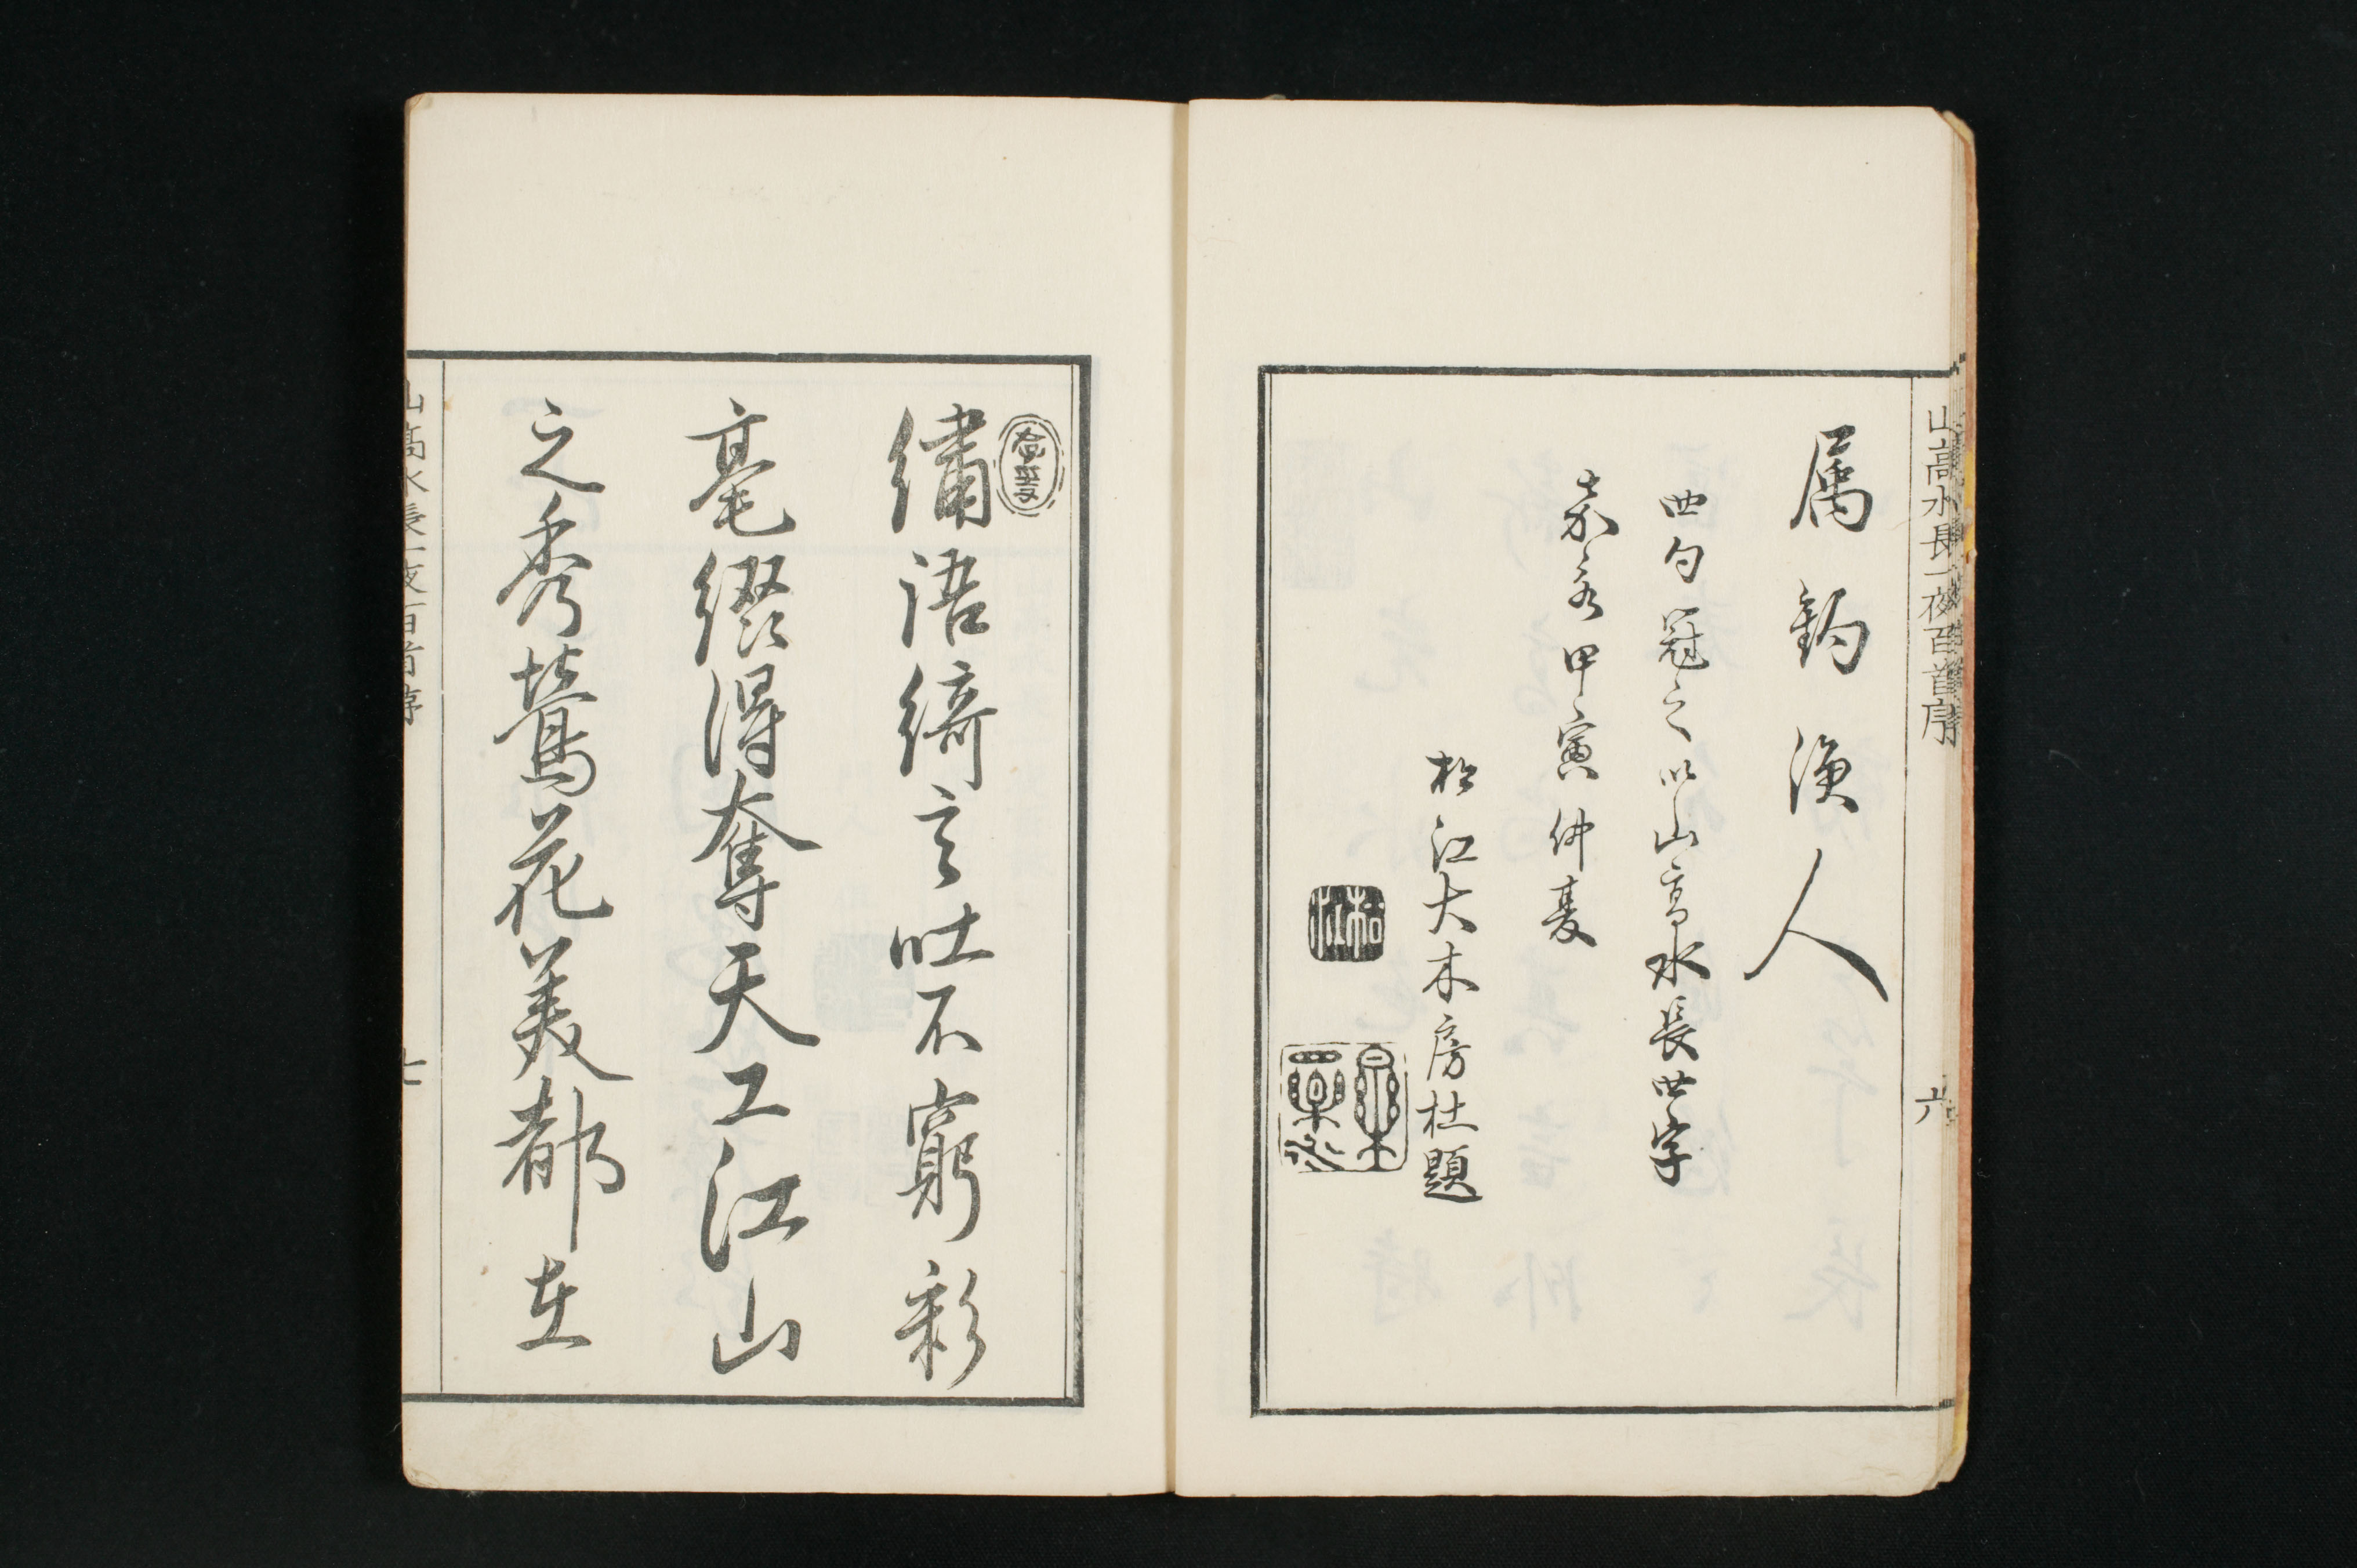 山高水長一夜百首序
六
属釣漁人
四句冠之以山高水長四字
嘉永甲寅仲夏
松江大木房杜題
松江
繡語綺言吐不窮彩
毫綴得奪天工江山
之秀鶯花美都在
山高水長一夜百首序
七